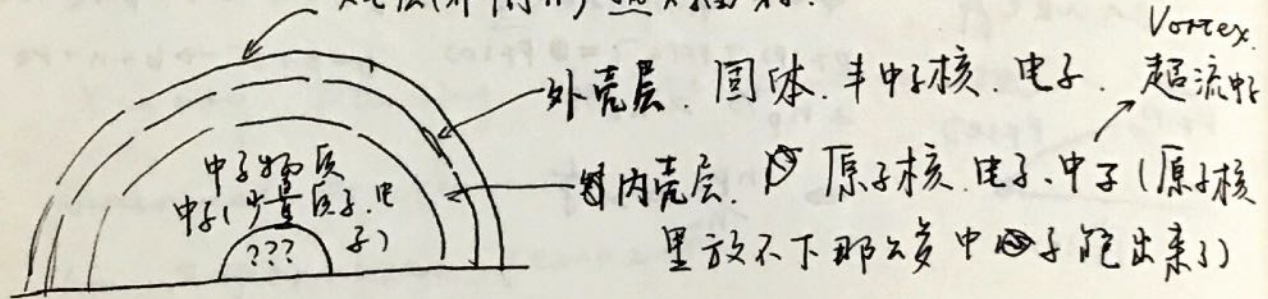 Vortex.
外壳层. 固体. 丰中子核. 电子. 超流中子
内壳层. 原子核. 电子. 中子(原子核
里放不下那么多中子跑出来了)
中子物质
中子(少量质子.电
子)
???